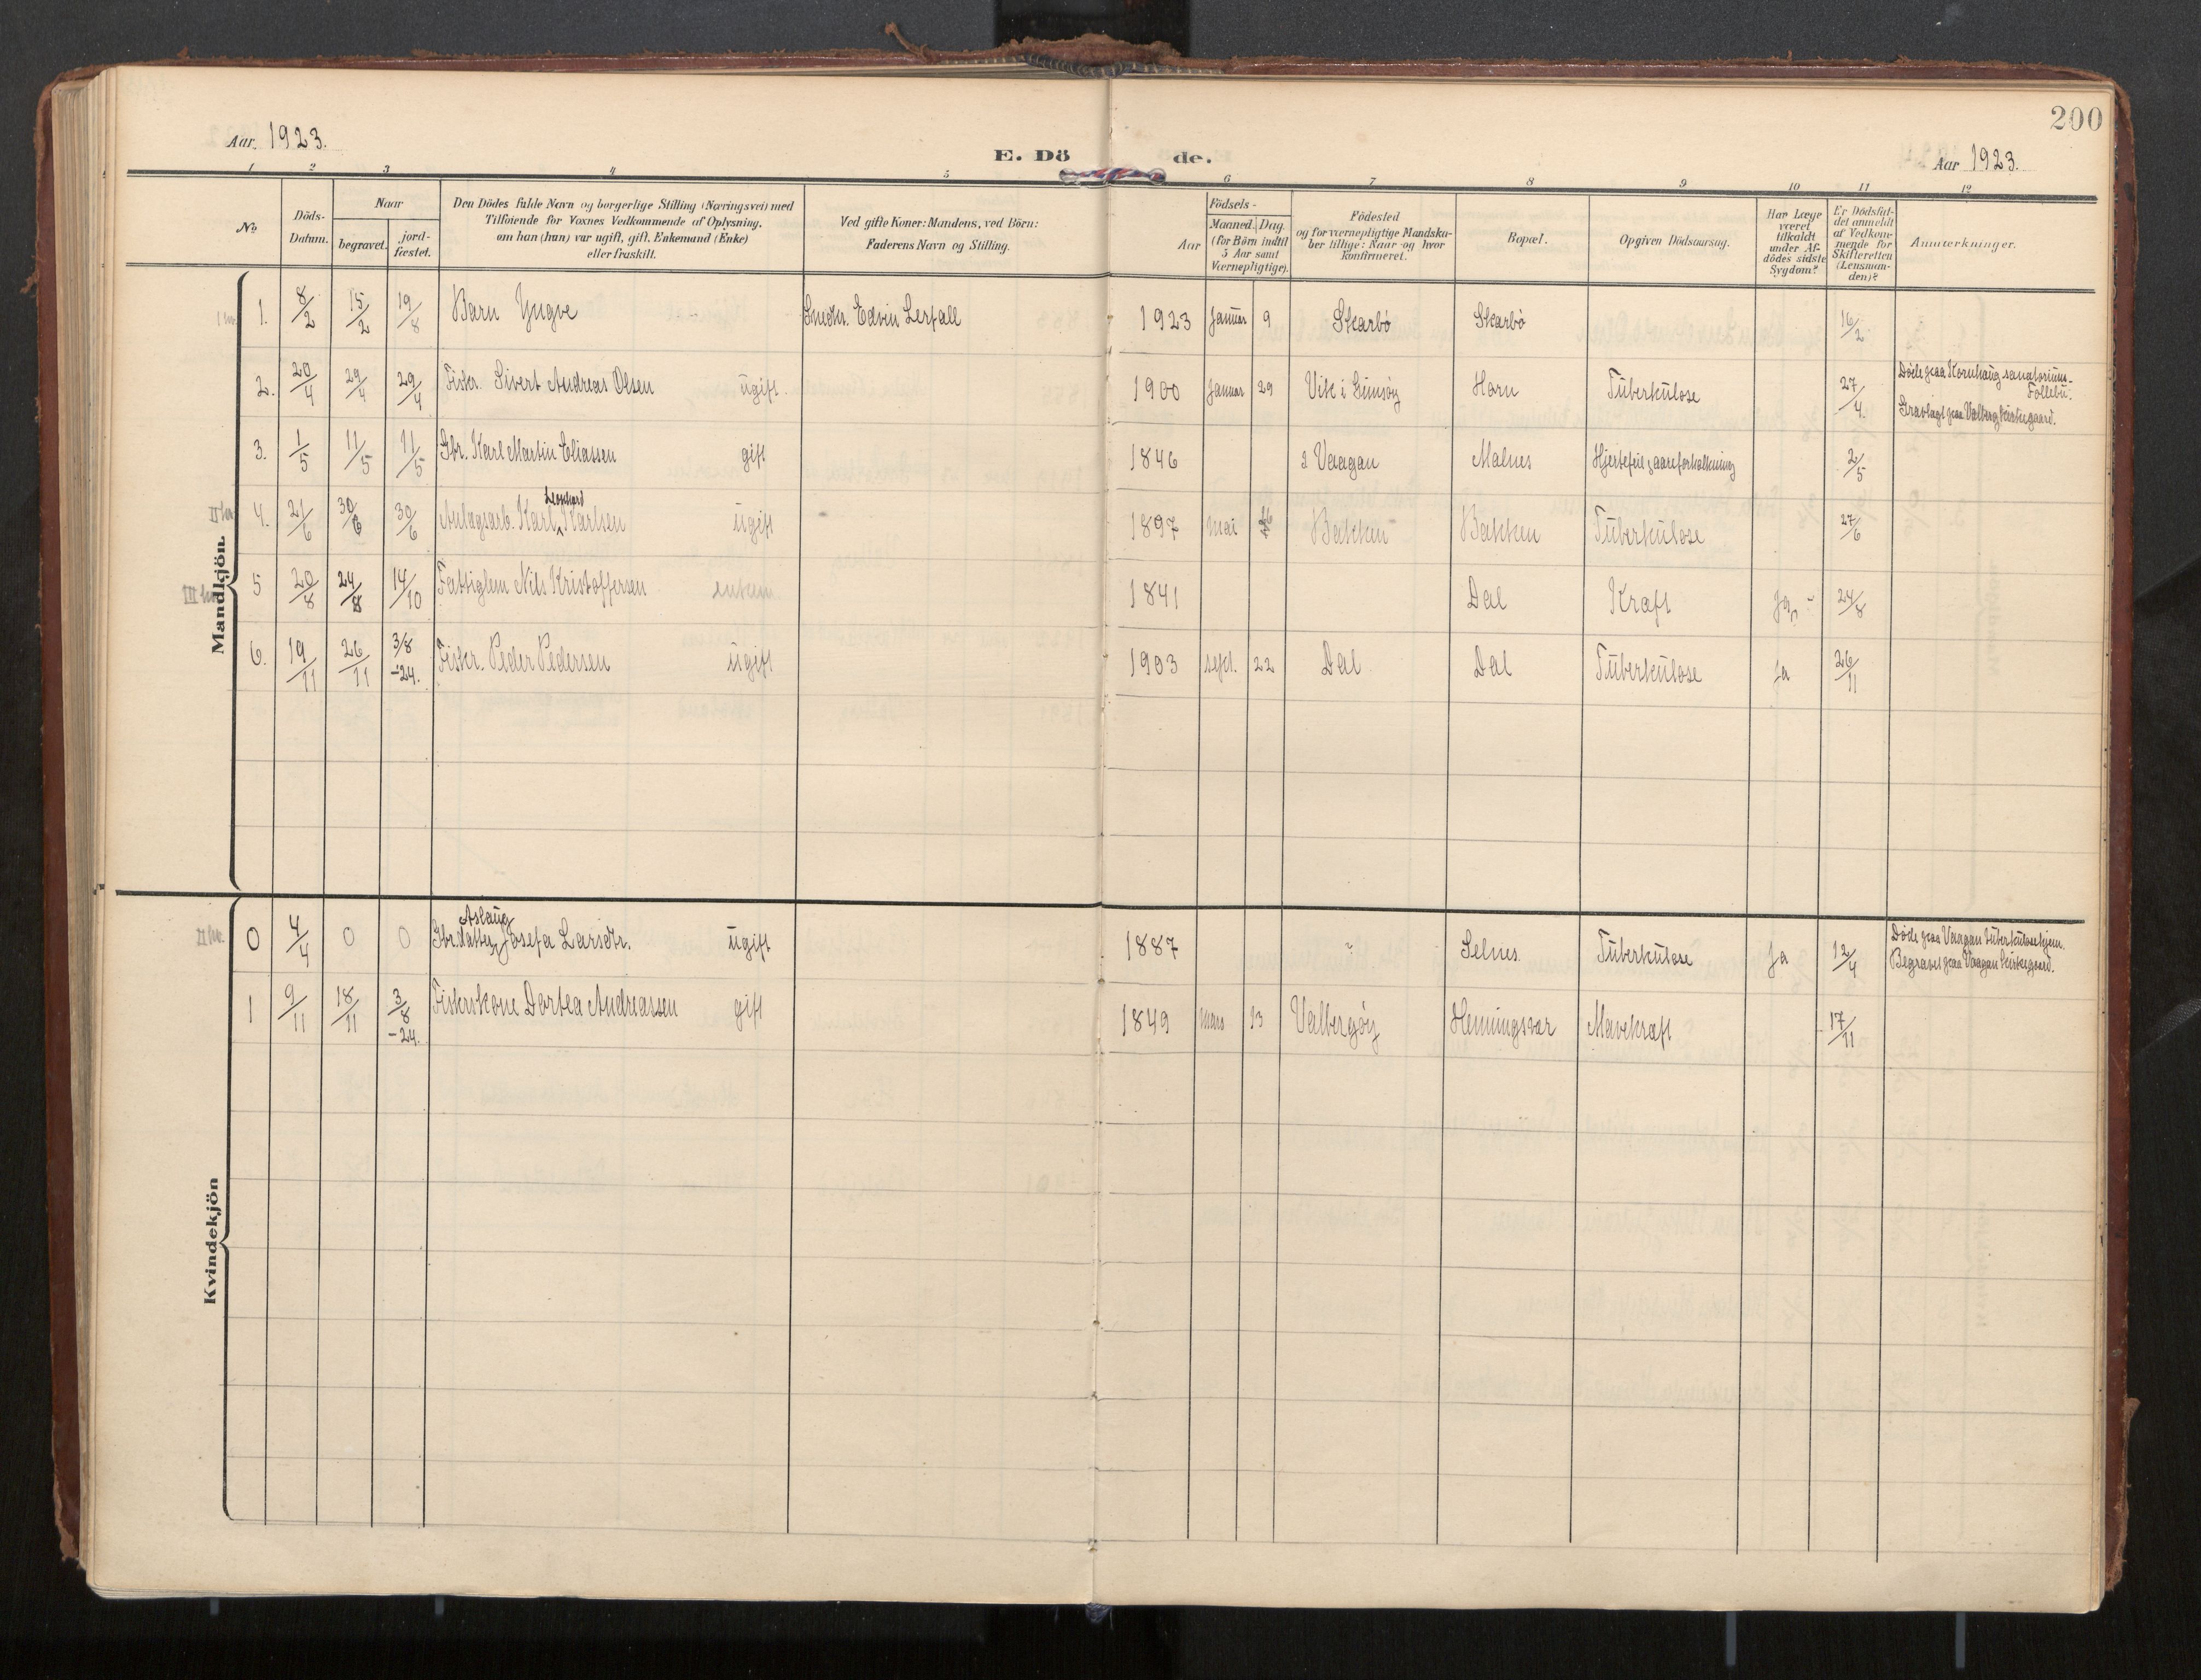 200
Aar. 1923.
E. Dö de.
Aar 1923.
1 2 3 4 5 6 7 8 9 10 11 12
No.
Döds-Datum.
Naar
begravet.
jord-fæstet.
Den Dödes fulde Navn og borgerlige Stilling (Næringsvei) med
Tilföiende for Voxnes Vedkommende af Oplysning,
om han (hun) var ugift, gift, Enkemand (Enke)
eller fraskilt.
Ved gifte Koner: Mandens, ved Börn:
Faderens Navn og Stilling.
Födsels-
Aar
Maaned. Dag.
(for Börn indtil
5 Aar samt
Værnepligtige).
Födested
og for værnepligtige Mandska-
ber tillige: Naar og hvor
konfirmeret.
Bopæl.
Opgiven Dödsaarsag.
Har Læge
været
tilkaldt
under Af-
dödes sidste
Sygdom?
Er Dödsfal-
det anmeldt
af Vedkom-
mende for
Skifteretten
(Lensman-
den)?
Anmærkninger.
Mandkjön.
1. 8/2 15/2 19/8 Barn Yngve Snedkr. Edvin Lerfall 1923 Januar 9 Skarbö Skarbö 16/2
2. 20/4 29/4 29/4 Fiskr. Sivert Andreas Olsen ugift. 1900 Januar 29 Vik i Gimsöy Horn Tuberkulose 27/4 Döde paa Kornhaug sanatorium-
Follebu.
Gravlagt paa Valberg kirkegaard.
3. 1/5 11/5 11/5 Gbr. Karl Martin Eliassen gift 1846 Vaagan Malnes Hjertefeil, aareforkalkning 2/5
II kv. 4. 21/6 30/6 30/6 Anlagsarb. Karl Leonhard Karlsen ugift 1897 Mai Bakken Bakken Tuberkulose 27/6
III kv. 5 20/8 24/8 14/10 Fattiglem Nils Kristoffersen enkem 1841 Dal Kræft Ja 24/8
6. 19/11 26/11 3/8 -24. Fiskr. Peder Pedersen ugift 1903 sept. 22 Dal Dal Tuberkulose Ja 26/11
Kvindekjön
II kv. 0 4/4 0 0 Gbr.datter Aslaug Josefa Larsdtr. ugift 1887 Selnes. Tuberkulose Ja 12/4 Döde paa Vaagan tuberkulosehjem.
Begravet paa Vaagan kirkegaard.
1 9/11 18/11 3/8 -24. Fiskerskone Dortea Andreassen gift 1849 Mars 13 Valbergöy Henningsvær Mavekræft 17/11